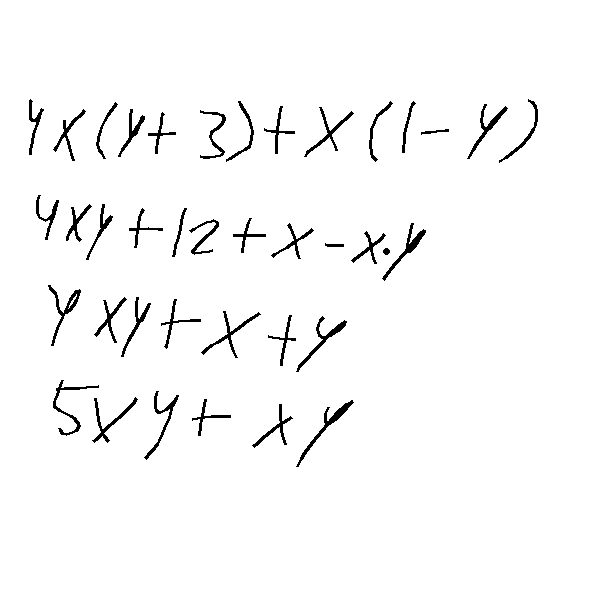 4x(y+3)+x(1-y)
4xy+12+x-x·y
4xy+x+y
5xy+xy